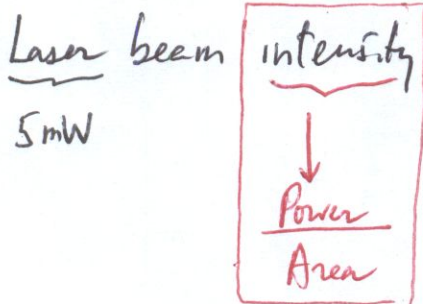 Laser beam intensity
5mW
Power
Area